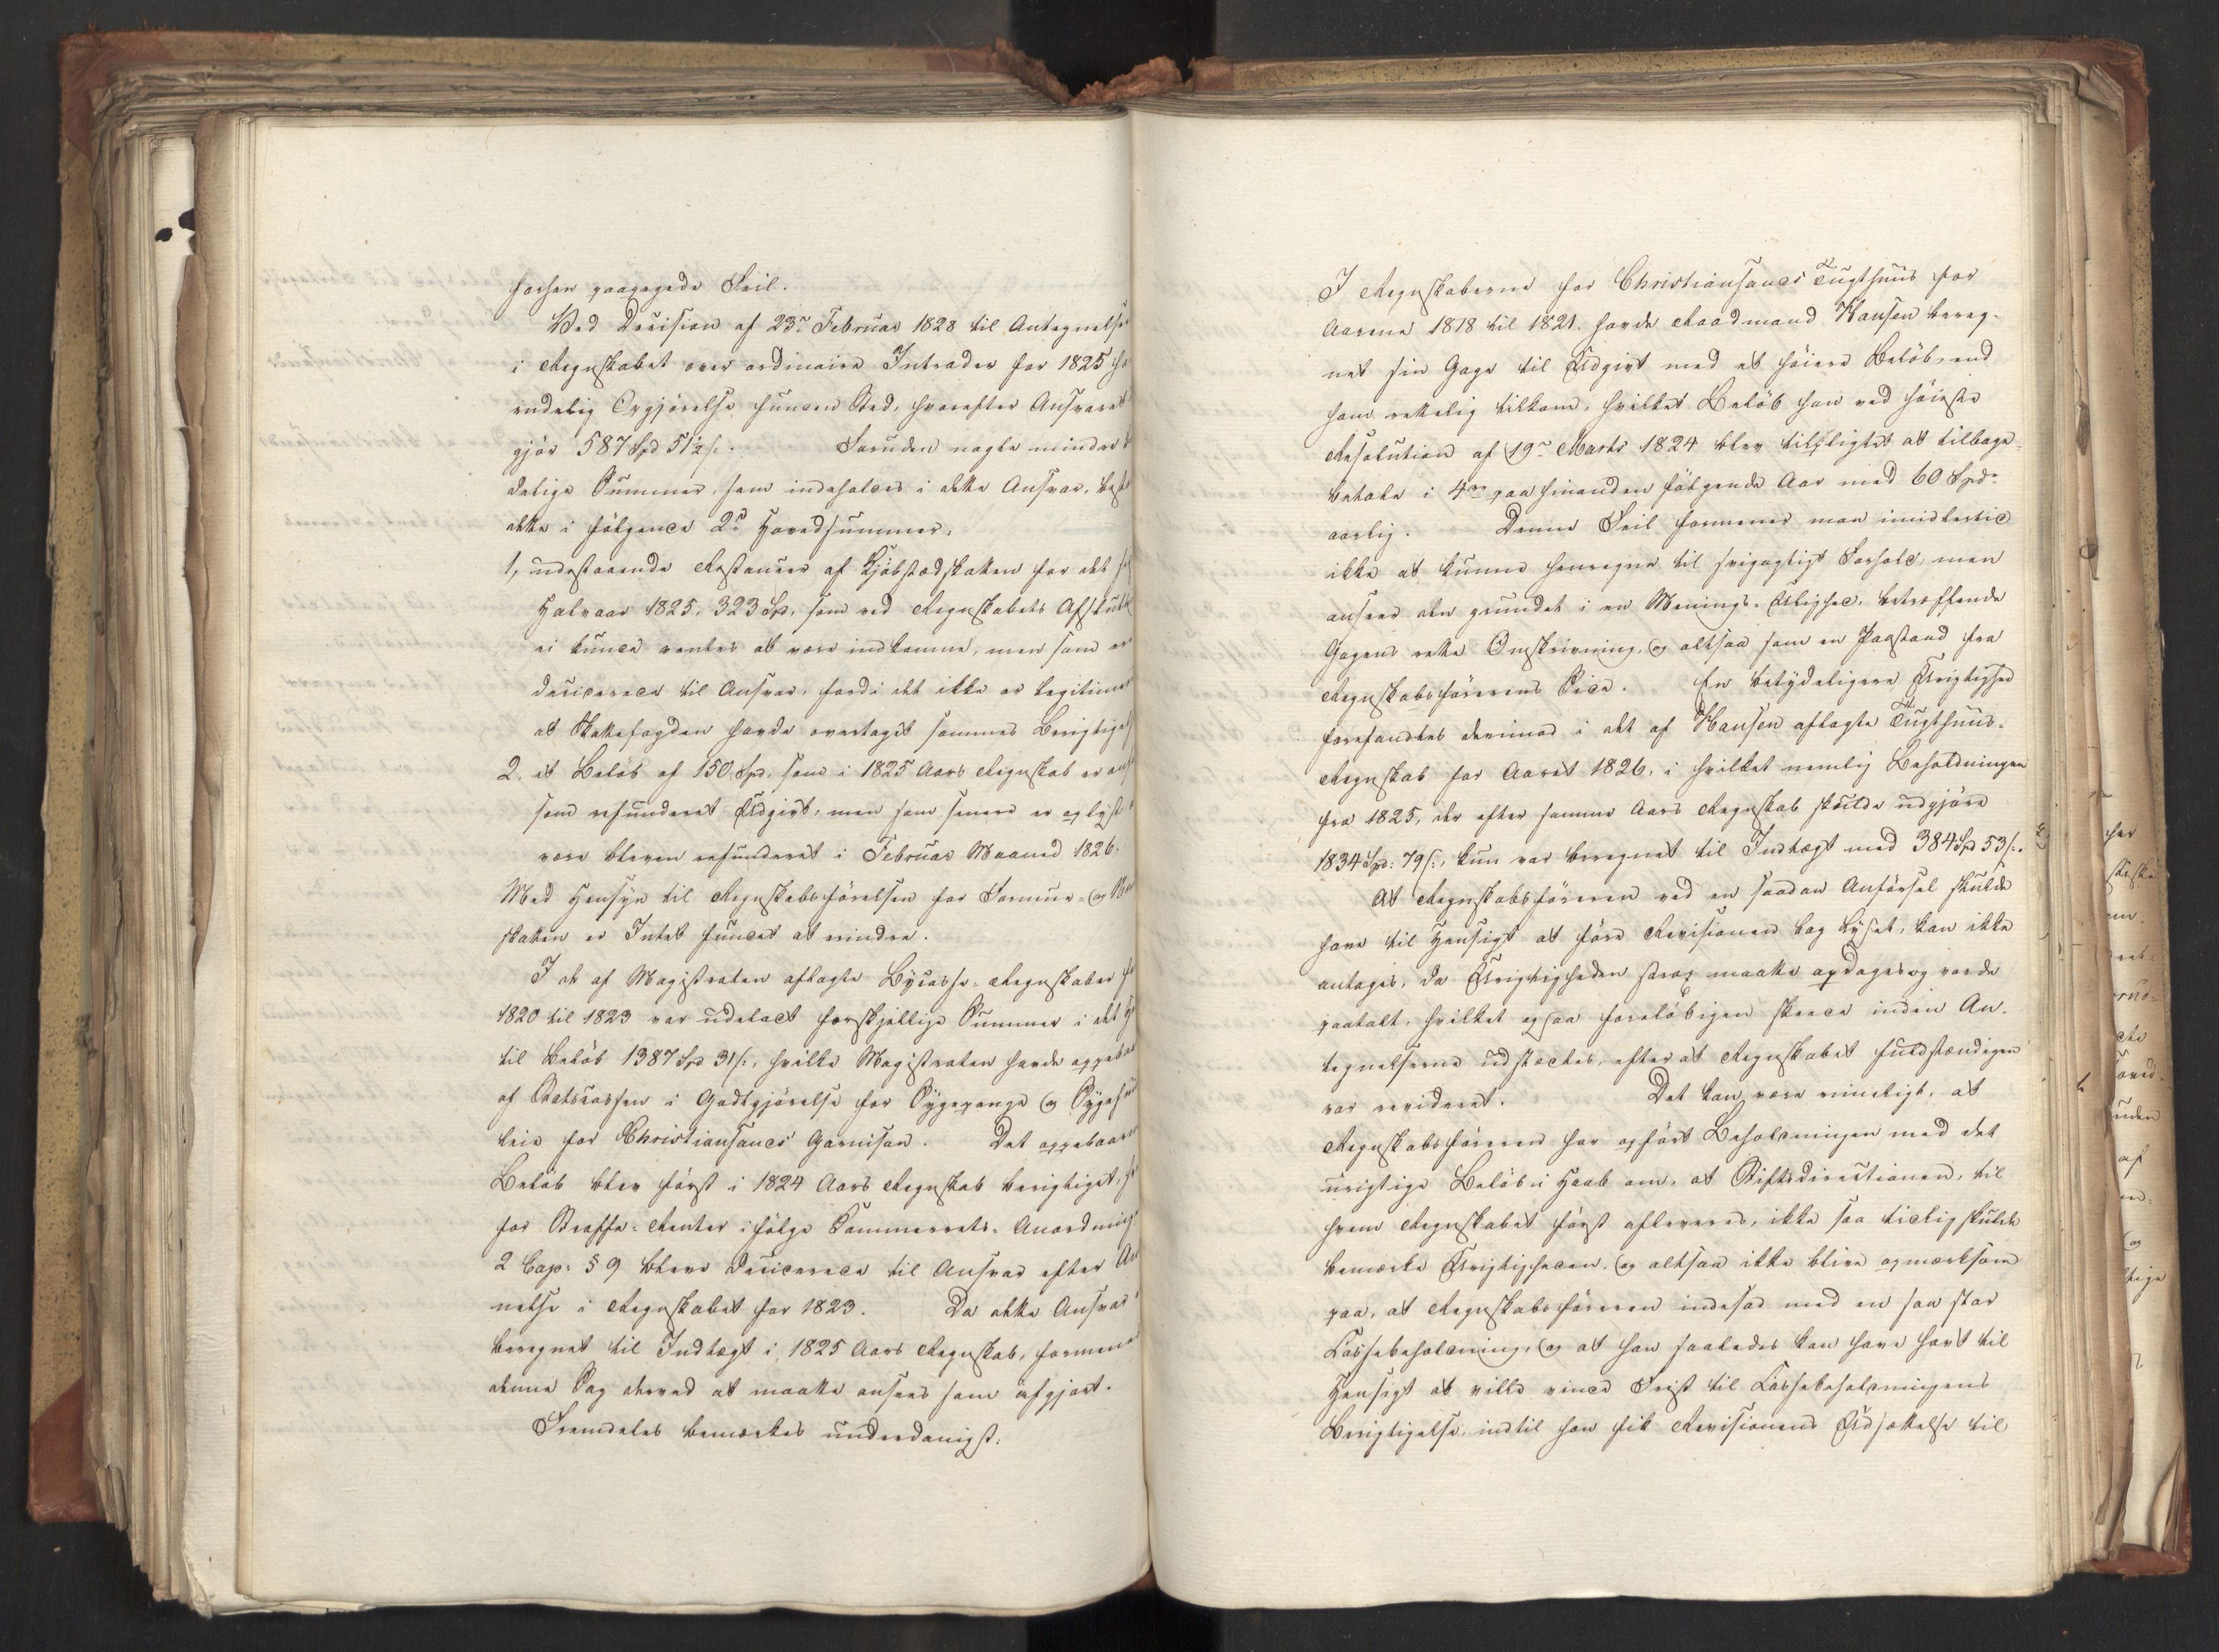 forhen paaegede Feil.
Ved Decision af 23de Februar 1828 til Antegnelse
i Regnskabet over ordinaire Intrader for 1825
endelig Opgjörelse funden Sted, hvorefter Ansvaret
gjör 587 Spd 51½ s. Foruden nogle mindre
delige Summer, som indeholdes i dette Ansvar,
dette i fölgende 2de Hovedsummer:
1, udestaaende Restancer af Kjöbstadskatten for det
Halvaar 1825, 323 Sp, som ved Regnskabets
ei kunde ventes at være indkomne, men som er
decideret til Ansvar, fordi det ikke er legitimeret
at Skattefogden havde overtaget sammes
2. et Belöb af 150 Spd, som i 1825 Aars Regnskab er
som refunderet Udgivt, men som senere er oplyst
være bleven refunderet i Februar Maaned 1826.
Med Hensyn til Regnskabsförelsen for Formue- og
skatten er Intet fundet at erindre.
I de af Magistraten aflagte Bycasse-Regnskaber
1820 til 1823 var udeladt forskjellige Summer i det
til Belöb 1387 Spd 31 s, hvilke Magistraten havde oppebaaret
af Statscassen i Godtgjörelse for Sygepenge og
leie for Christiansands Garnison. Det oppebaarne
Belöb blev först i 1824 Aars Regnskab berigtiget,
for Straffe-Renter ifölge Kammerrets-Anordning
2 Cap: § 9 bleve deciderede til Ansvar efter
nelse i Regnskabet for 1823. Da dette Ansvar
beregnet til Indtægt i 1825 Aars Regnskab, formenes
denne Sag derved at maatte ansees som afgjort.
Fremdeles bemærkes underdanigst:
I Regnskaberne for Christiansands Tugthuus for
Aarene 1818 til 1821 havde Raadmand Hansen bereg-
net sin Gage til Udgivt med et höiere Belöb, end
ham rettelig tilkom, hvilket Belöb han ved höieste
Resolution af 19de Marts 1824 blev tilpligtet at tilbage-
betale i 4re paa hinanden fölgende Aar med 60 Spd
aarlig. Denne Feil formener man imidlertid
ikke at kunne henregne til svigagtigt Forhold, men
ansees den grundet i en Menings-Ulighed, betræffende
Gagens rette Omskrivning, og altsaa som en Paastand fra
Regnskabsförerens Side. En betydeligere Urigtighed
forefandtes derimod i det af Hansen aflagte Tugthuus-
Regnskab for Aaret 1826, i hvilket nemlig Beholdningen
fra 1825, der efter samme Aars Regnskab skulde udgjöre
1834 Spd: 79 s:, kun var beregnet til Indtægt med 384 Spd 53 s.
At Regnskabsföreren ved en saadan Anförsel skulde
have til Hensigt at före Revisionen bag Lyset, kan ikke
antages, da Urigtigheden strax maatte opdages og vorde
paatalt, hvilket ogsaa foreløbigen skeede inden An-
tegnelserne udstædtes, efter at Regnskabet fuldstændigen
var revideret. Det kan være rimeligt, at
Regnskabsföreren har opfört Beholdningen med det
urigtige Belöb i Haab om, at Stiftsdirectionen, til
hvem Regnskabet först afleveres, ikke saa tidlig skulde
bemærke Urigtigheden, og altsaa ikke blive opmærksom
paa, at Regnskabsföreren indesad med en saa stor
Cassebeholdning, og at han saaledes kan have havt til
Hensigt at ville vinde Frist til Cassebeholdningens
Berigtigelse, indtil han fik Revisionens Udsættelse til